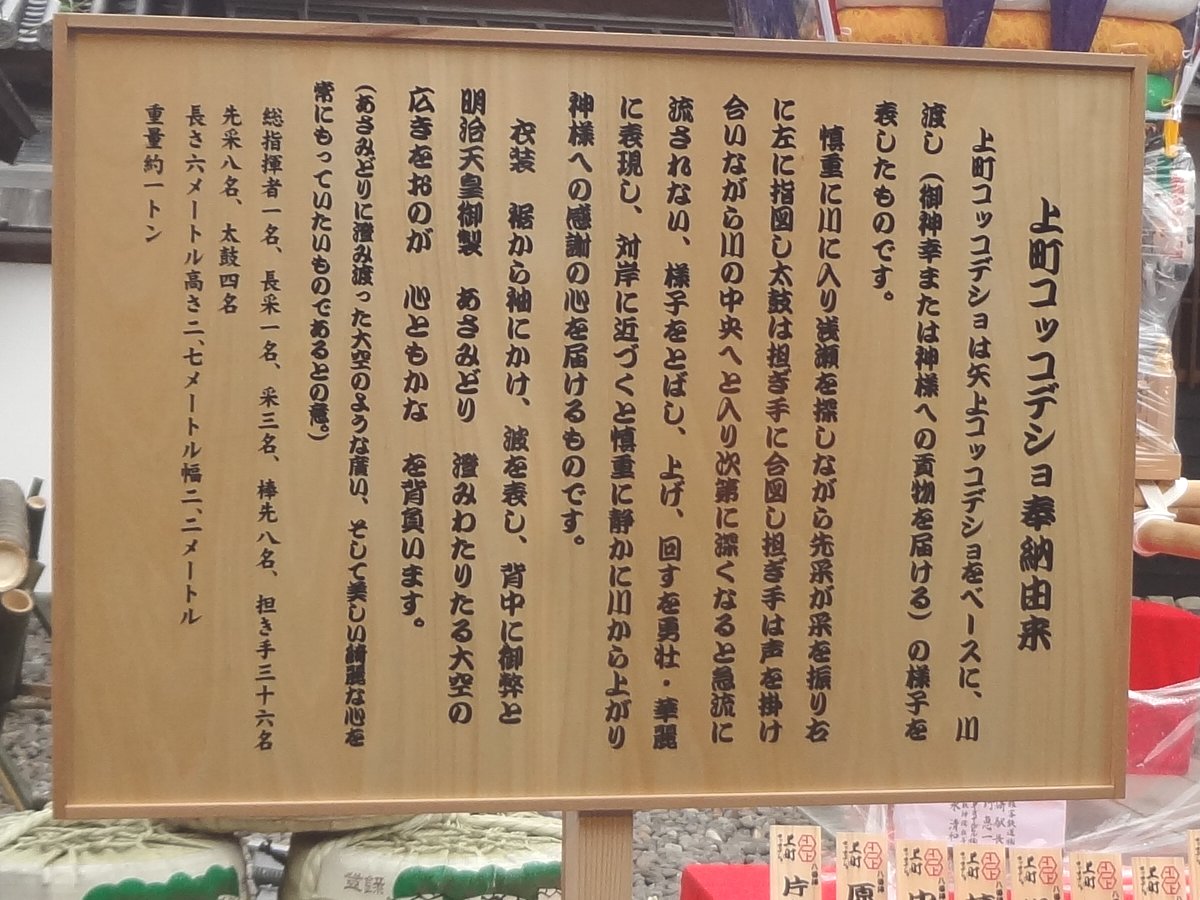 上町コッコデショ奉納由来
上町コッコデショは矢上コッコデショをベースに、川
渡し（御神幸または神様への貢物を届ける）の様子を
表したものです。
慎重に川に入り浅瀬を探しながら先采が采を振り右
に左に指図し太鼓は担ぎ手に合図し担ぎ手は声を掛け
合いながら川の中央へと入り次第に深くなると急流に
流されない、様子をとばし、上げ、回すを勇壮・華麗
に表現し、対岸に近づくと慎重に静かに川から上がり
神様への感謝の心を届けるものです。
衣装　裾から袖にかけ、波を表し、背中に御弊と
明治天皇御製　あさみどり　澄みわたりたる大空の
広きをおのが　心ともかな　を背負います。
（あさみどりに澄み渡った大空のような廣い、そして美しい綺麗な心を
常にもっていたいものであるとの意。）
総指揮者一名、長采一名、采三名、棒先八名、担き手三十六名
先采八名、太鼓四名
長さ六メートル高さ二、七メートル幅二、二メートル
重量約一トン
上町
片
上町
原
上町
上町
上町
上町
上町